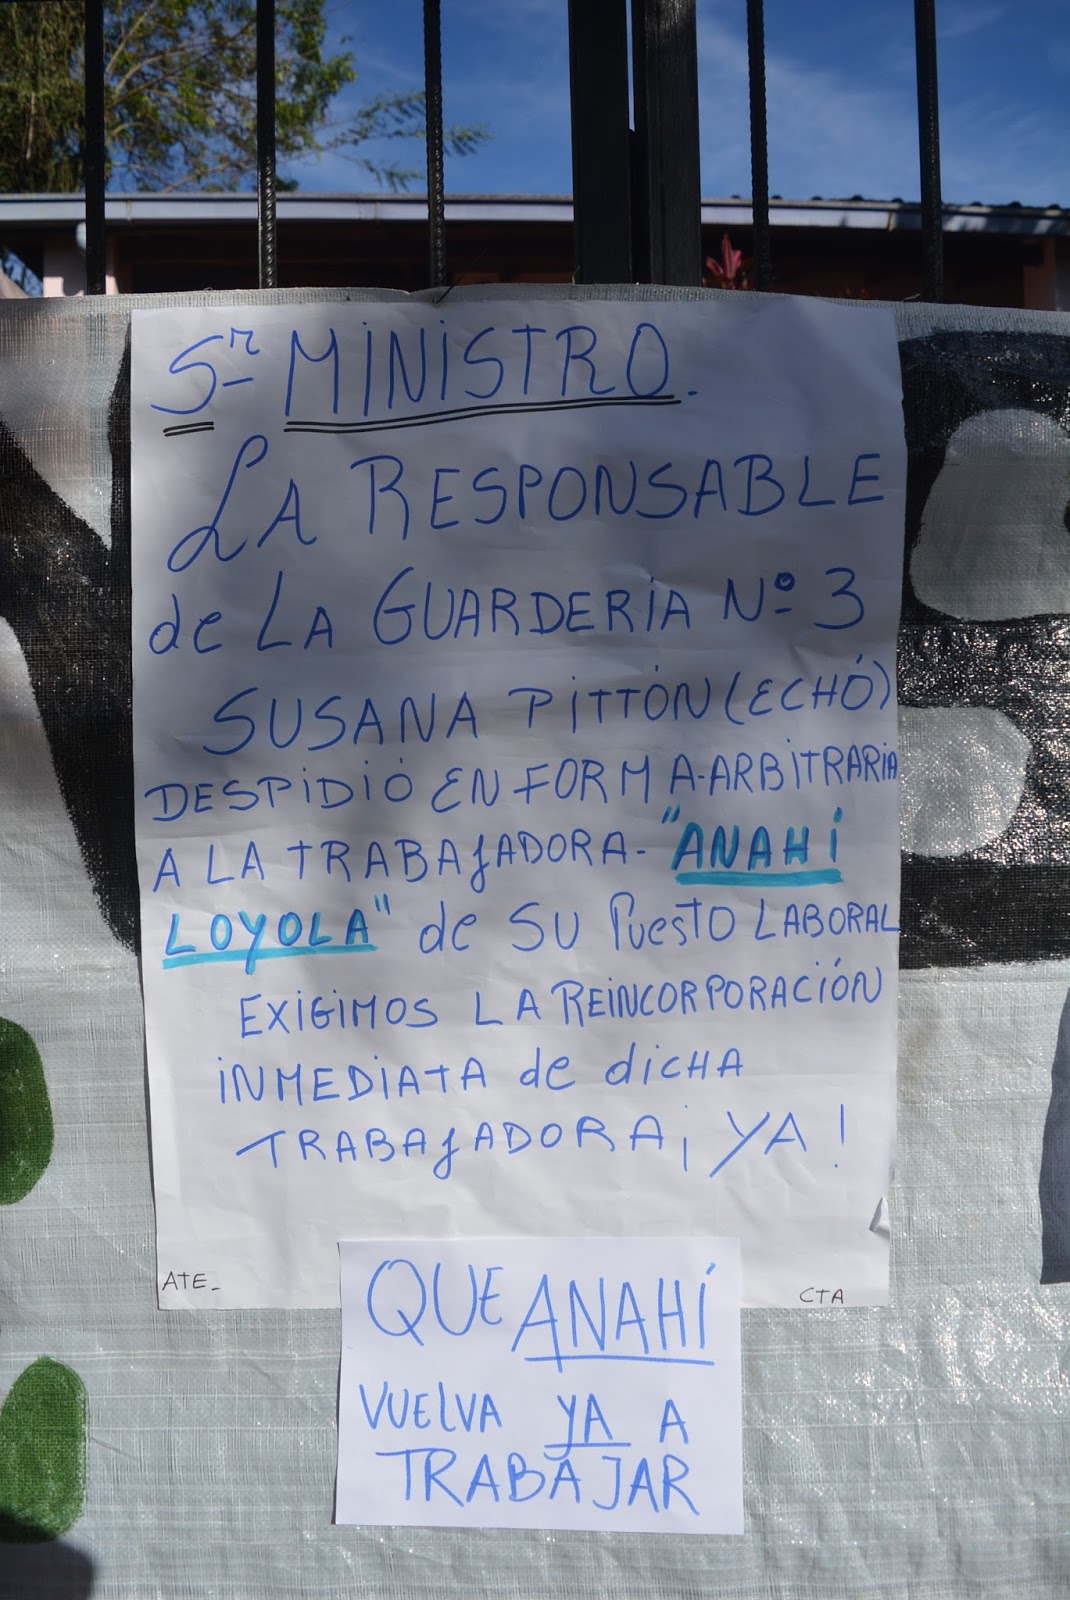 Sr MINISTRO.
LA RESPONSABLE
de LA GUARDERiA Nº 3
SUSANA PiTTÓN (ECHÓ)
DESPiDiÓ EN FORMA-ARBiTRARiA
A LA TRABAJADORA- "ANAHÍ
LOYOLA" de SU PuesTO LABORAL
EXiGiMOS LA REiNCORPORACiÓN
iNMEDiATA de diCHA
TRABAJADORA ¡YA!
ATE-
CTA
QUE ANAHÍ
VUELVA YA A
TRABAJAR